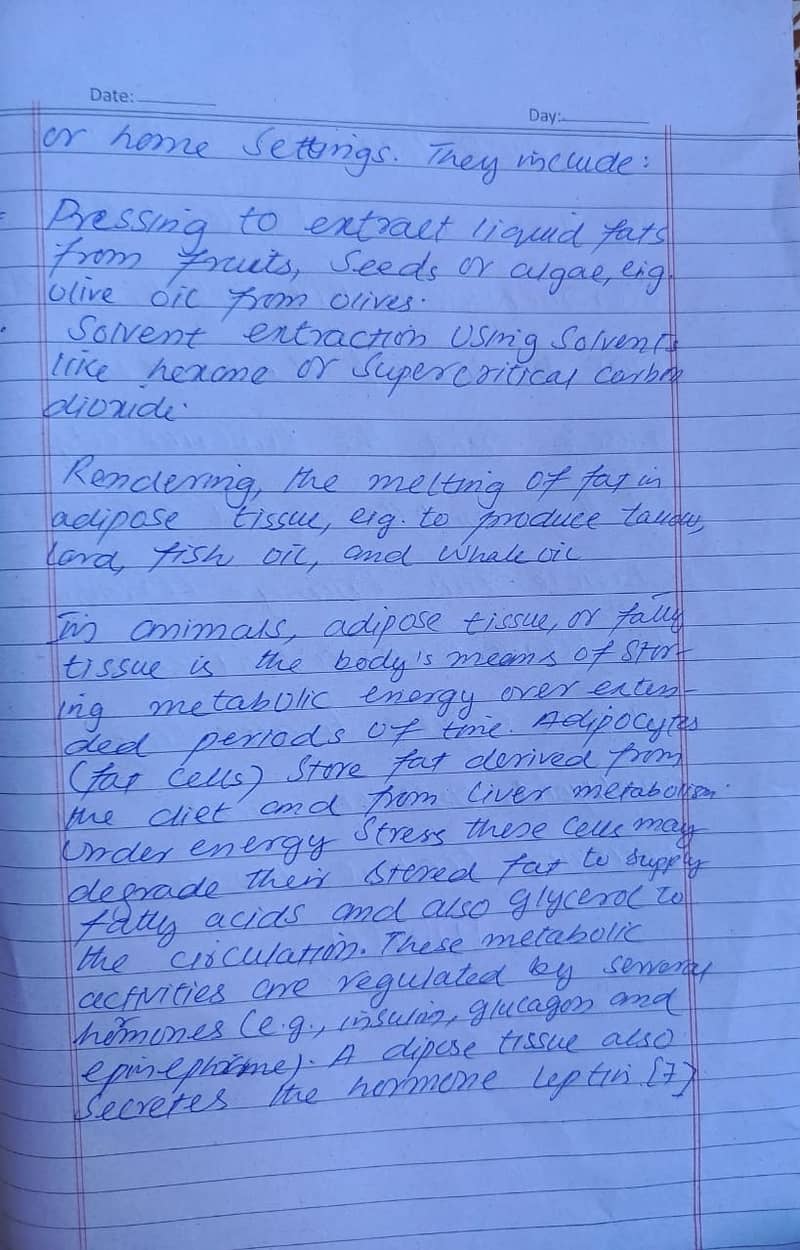 Date:
Day:
or home settings. They include:
Pressing to extract liquid fats
from fruits, seeds or algae, e.g.
olive oil from olives.
Solvent extraction using solvents
like hexane or supercritical carbon
dioxide.
Rendering, the melting of fat in
adipose tissue, e.g. to produce tallow,
lard, fish oil, and whale oil
In animals, adipose tissue, or fatty
tissue is the body's means of stor-
ing metabolic energy over exten-
ded periods of time. Adipocytes
(fat cells) store fat derived from
the diet and from liver metabolism.
Under energy stress these cells may
degrade their stored fat to supply
fatty acids and also glycerol to
the circulation. These metabolic
activities are regulated by several
hormones (e.g., insulin, glucagon and
epinephrine). Adipose tissue also
secretes the hormone leptin [7]